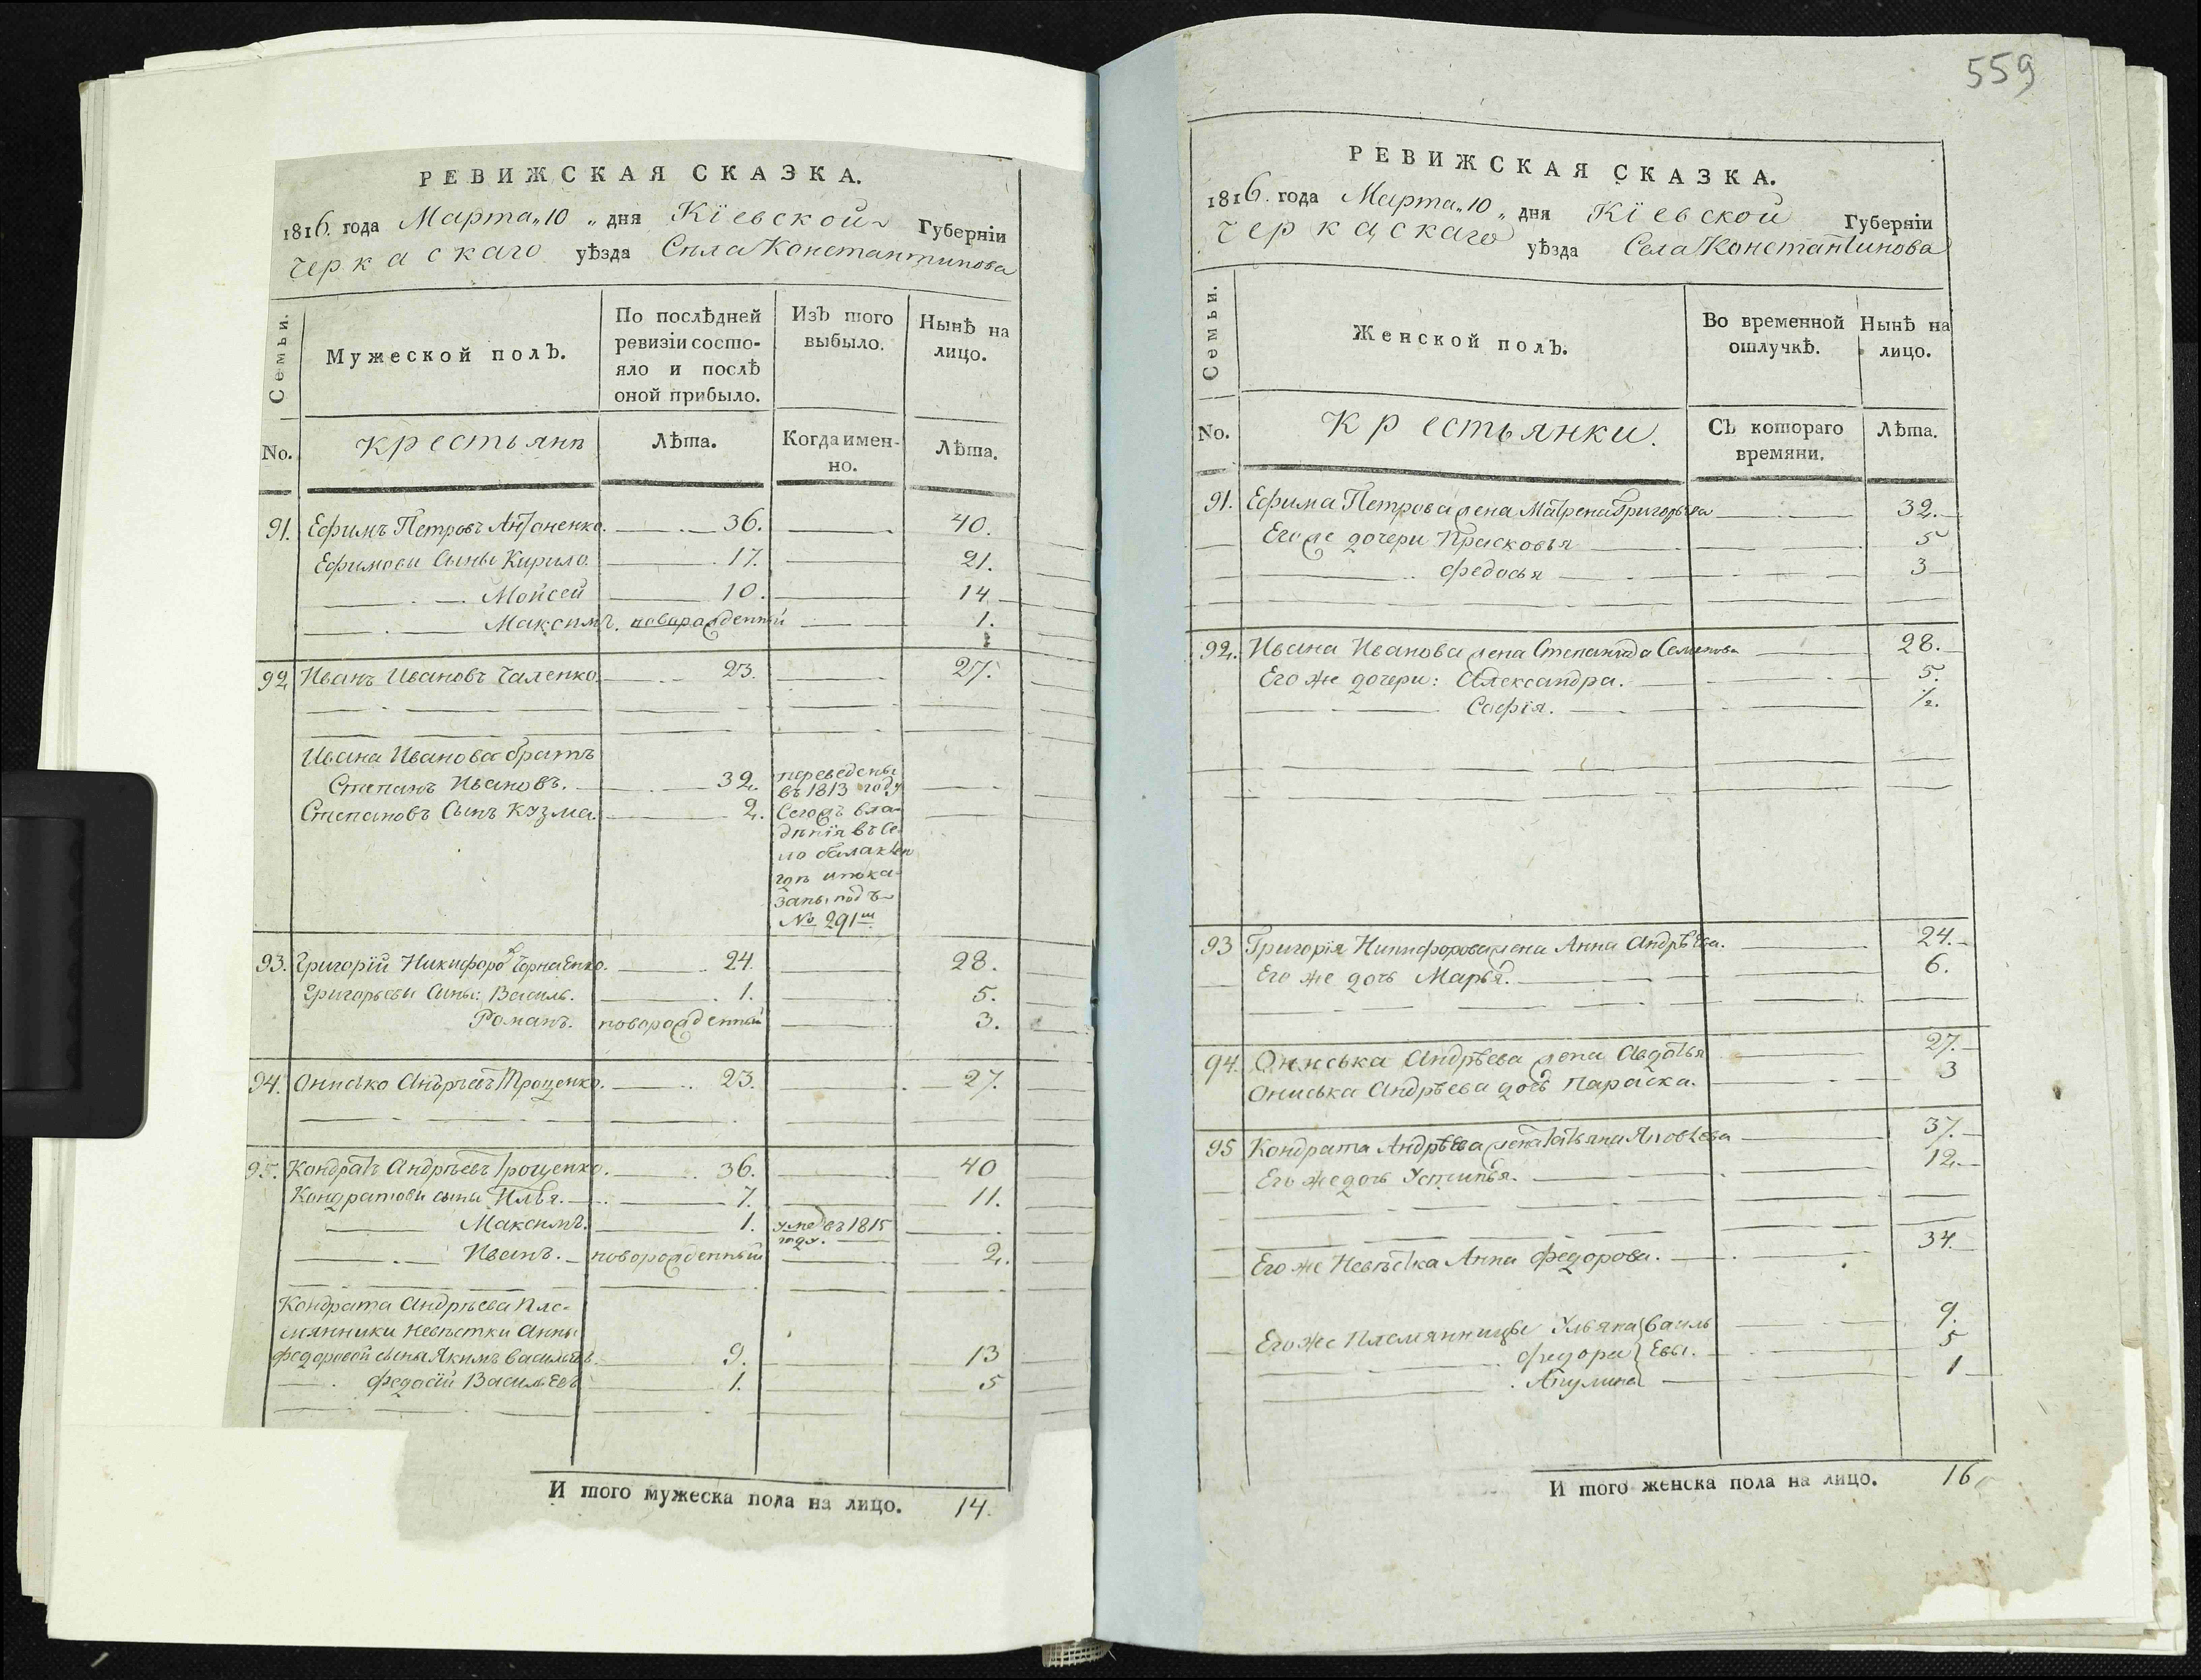 РЕВИЖСКАЯ СКАЗКА.
1816. года Марта „10 „ дня Кіевской Губерніи
Черкаскаго уѣзда Села Константинова
Семьи.
Мужеской полъ.
По послѣдней ревизіи состояло и послѣ оной прибыло.
Изъ того выбыло.
Нынѣ на лицо.
No.
Крестьянъ
Лѣта.
Когда именно.
Лѣта.
91. Ефимъ Петровъ Антоненко. 36. 40.
Ефимови Сыны Кирило. 17. 21.
Мойсей 10. 14
Максимъ. новорожденный 1.
92 Иванъ Ивановъ Чаленко. 23. 27.
Ивана Иванова братъ
Степанъ Ивановъ. 32. переведены
въ 1813 году
Степановъ Сынъ Кузма. 2. Сегожъ вла
дѣнія въ Се
ло
и пока
заны подъ
№ 291 м
93. Григорій Никифоровъ Чорнаенко. 24. 28.
Григорьевы Сыны: Василь. 1. 5.
Романъ. новорожденный 3.
94. Онисько Андрѣевъ Троценко. 23. 27.
95. Кондратъ Андрѣевъ Троценко. 36. 40
Кондратови сыны Илья. 7. 11.
Максимъ. 1. умре въ 1815
году.
Иванъ. новорожденный 2.
Кондрата Андрѣева пле-
мянники невѣстки Анны
Федоровой сыны Якимъ Васильевъ. 9. 13
Федосій Васильевъ 1. 5
И того мужеска пола на лицо. 14.
559
РЕВИЖСКАЯ СКАЗКА.
1816. года Марта „10 „ дня Кіевской Губерніи
Черкаскаго уѣзда Села Константинова
Семьи.
Женской полъ.
Во временной отлучкѣ.
Нынѣ на лицо.
No.
Крестьянки.
Съ котораго времяни.
Лѣта.
91. Ефима Петрова жена Матрена Григорьева 32.
Его же дочери Прасковья 5
Федосья 3
92. Ивана Иванова жена Степанида Семенова 28.
Его же дочери: Александра. 5.
Софія. 1/2.
93 Григорія Никифорова жена Анна Андрѣева. 24.
Его же дочь Марья. 6.
94. Ониська Андрѣева жена Авдотья 27.
Ониська Андрѣева дочь Параска. 3
95 Кондрата Андрѣева жена Татьяна Яковлева 37.
Его же дочь Устинья. 12.
Его же Невѣстка Анна Федорова. 34.
Его же Племянницы Ульяна Василь 9.
Федора евы. 5
Акулина 1
И того женска пола на лицо. 16